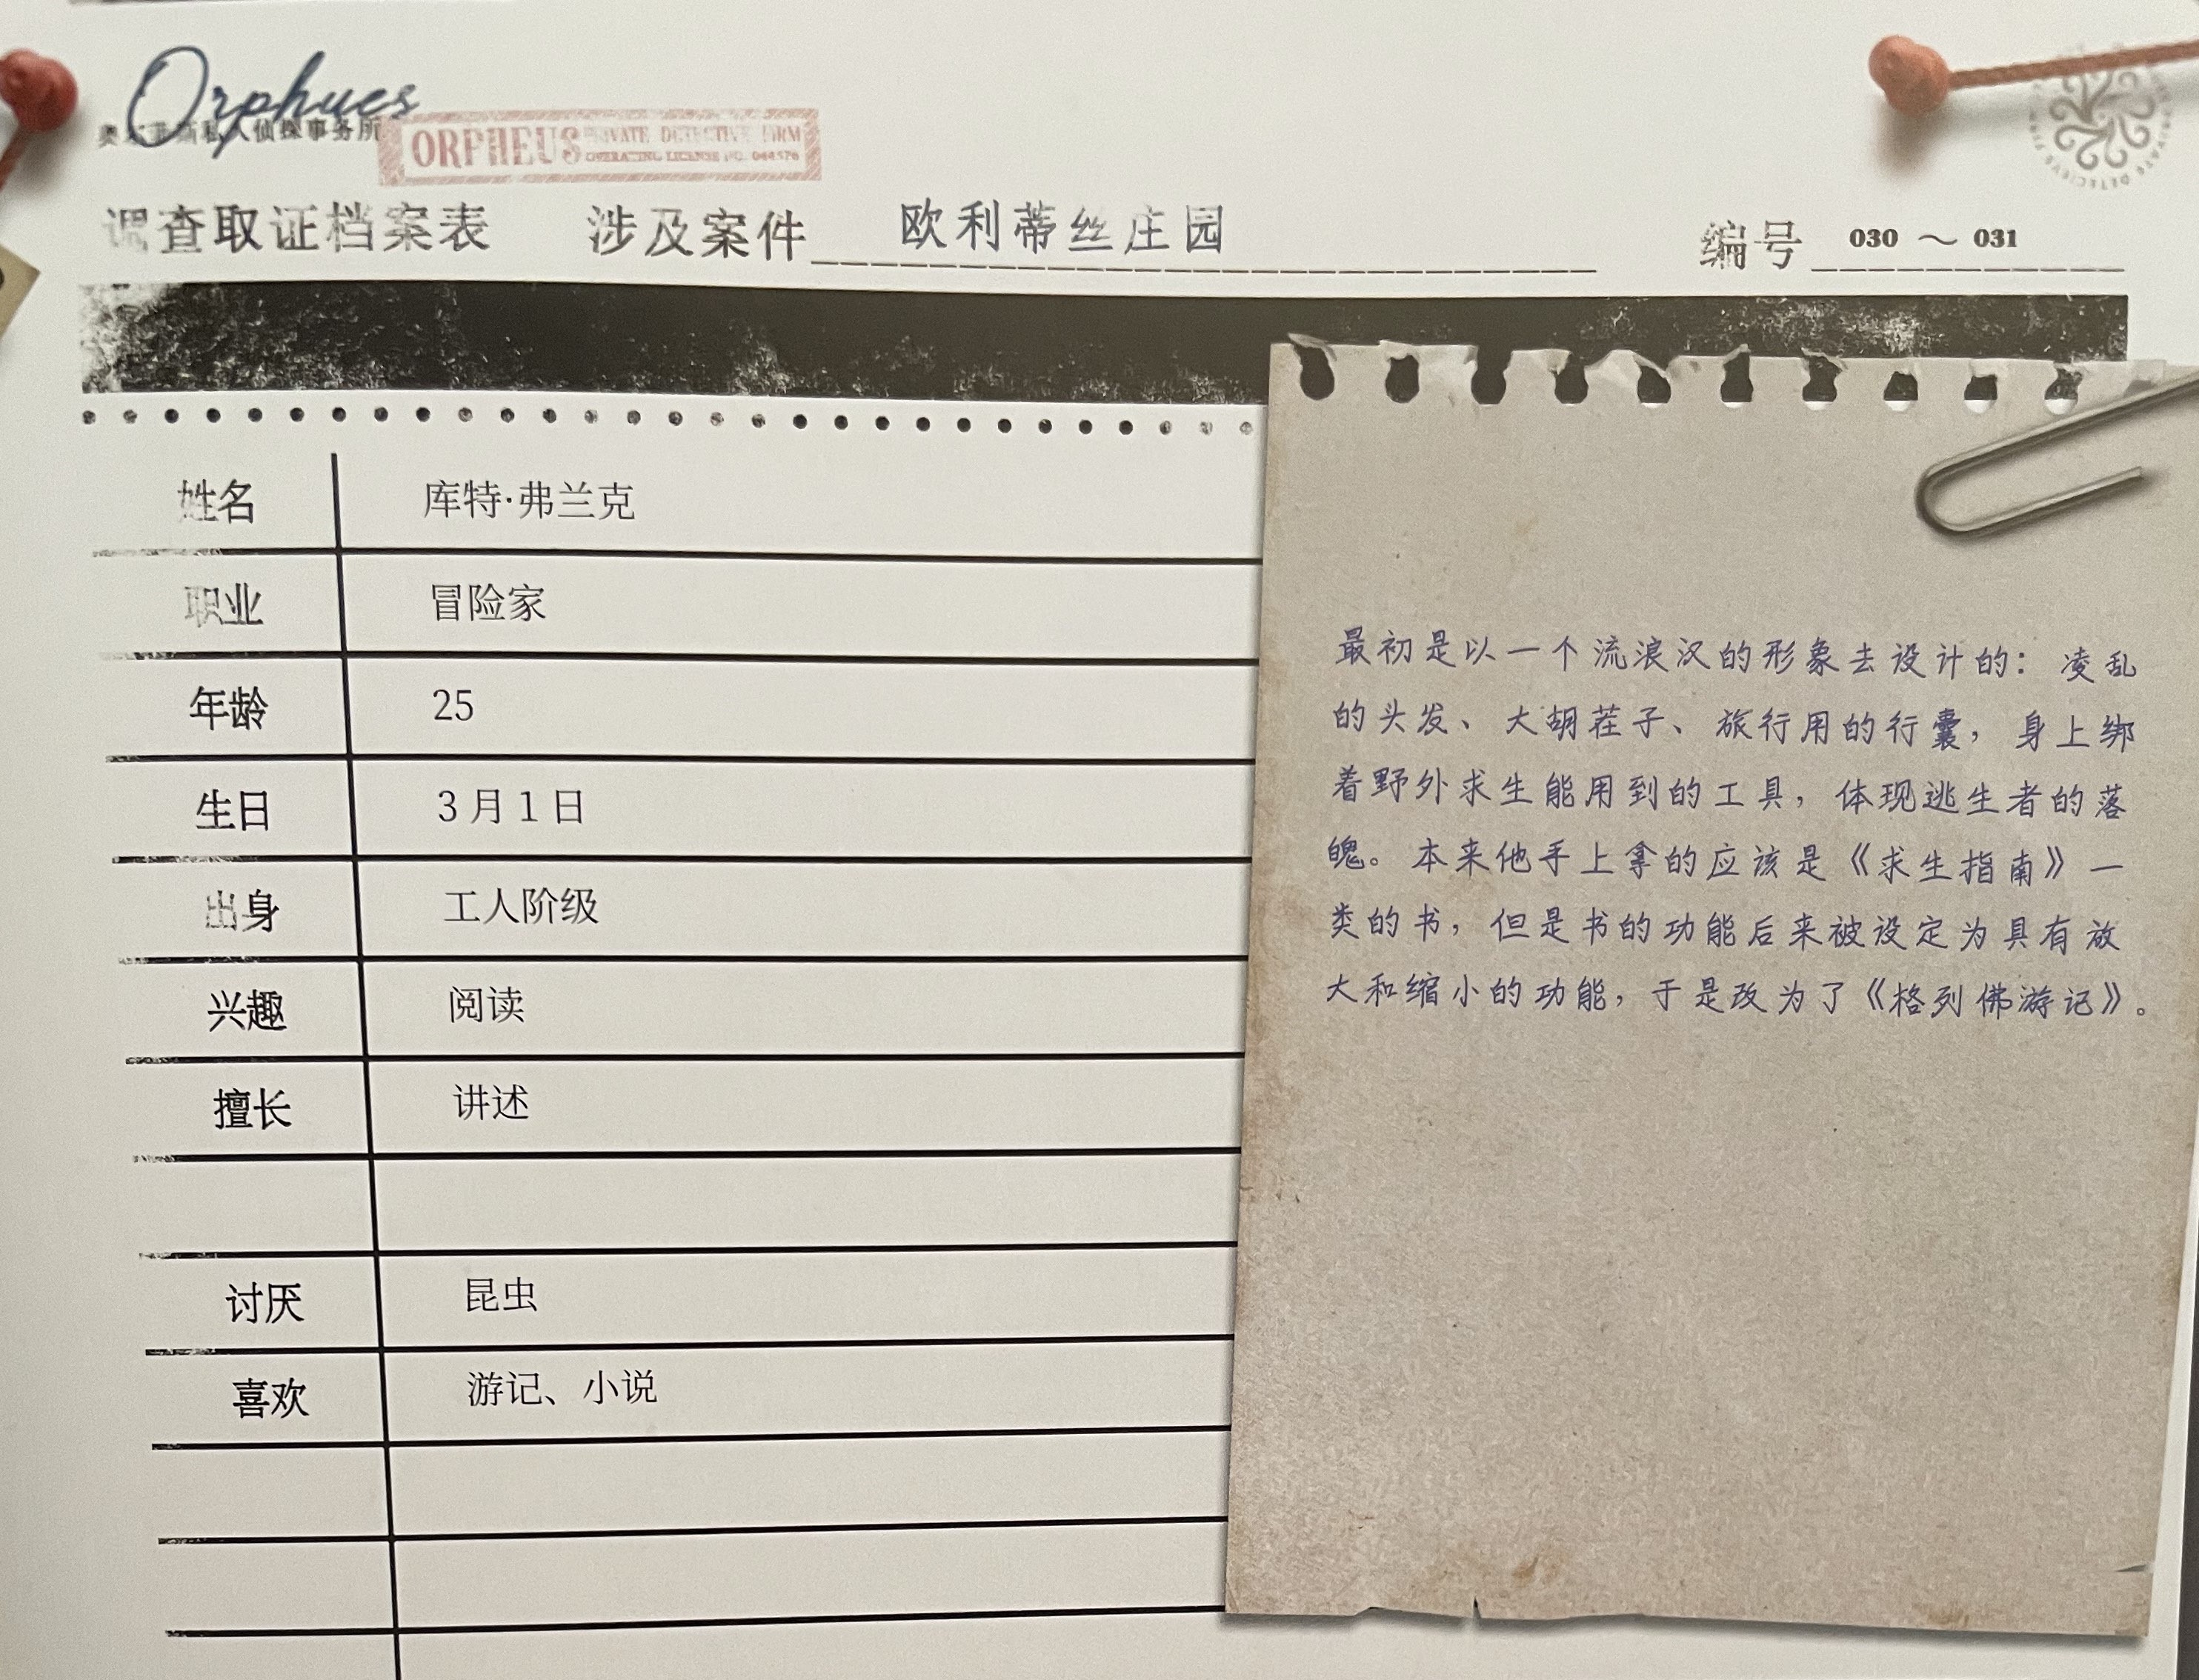 Orphues
奥尔菲斯私人侦探事务所
ORPHEUS PRIVATE DETECTIVE FIRM
OPERATING LICENSE NO.
调查取证档案表 涉及案件 欧利蒂丝庄园 编号 030 ～ 031
姓名 库特·弗兰克
职业 冒险家
年龄 25
生日 3 月 1 日
出身 工人阶级
兴趣 阅读
擅长 讲述
讨厌 昆虫
喜欢 游记、小说
最初是以一个流浪汉的形象去设计的：凌乱
的头发、大胡茬子、旅行用的行囊，身上绑
着野外求生能用到的工具，体现逃生者的落
魄。本来他手上拿的应该是《求生指南》一
类的书，但是书的功能后来被设定为具有放
大和缩小的功能，于是改为了《格列佛游记》。